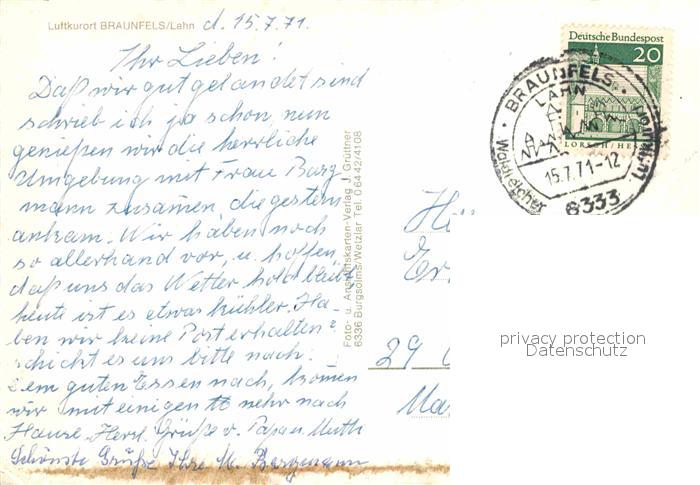 Luftkurort BRAUNFELS/Lahn d. 15.7.71.
Ihr Lieben!
Daß wir gut gelandet sind
schrieb ich ja schon, nun
genießen wir die herrliche
Umgebung mit Frau Barg-
mann zusamen, die gestern
ankam. Wir haben noch
so allerhand vor, u. hoffen,
daß uns das Wetter hold bleibt,
heute ist es etwas kühler. Ha-
ben wir keine Post erhalten?
schickt es uns bitte nach.
Dem guten Essen nach, kömen
wir mit einigen ℔ mehr nach
Hause. Herzl. Grüße v. Papa u. Mutti
Schönste Grüße Ihre M. Bargmann
Foto- u. Ansichtskarten-Verlag J. Grüttner
6336 Burgsolms/Wetzlar Tel. 06442/4108
Deutsche Bundespost
20
LORSCH/HESS
BRAUNFELS
LAHN
Waldreicher
Luftkurort
15.7.71-12
6333
29
privacy protection
Datenschutz